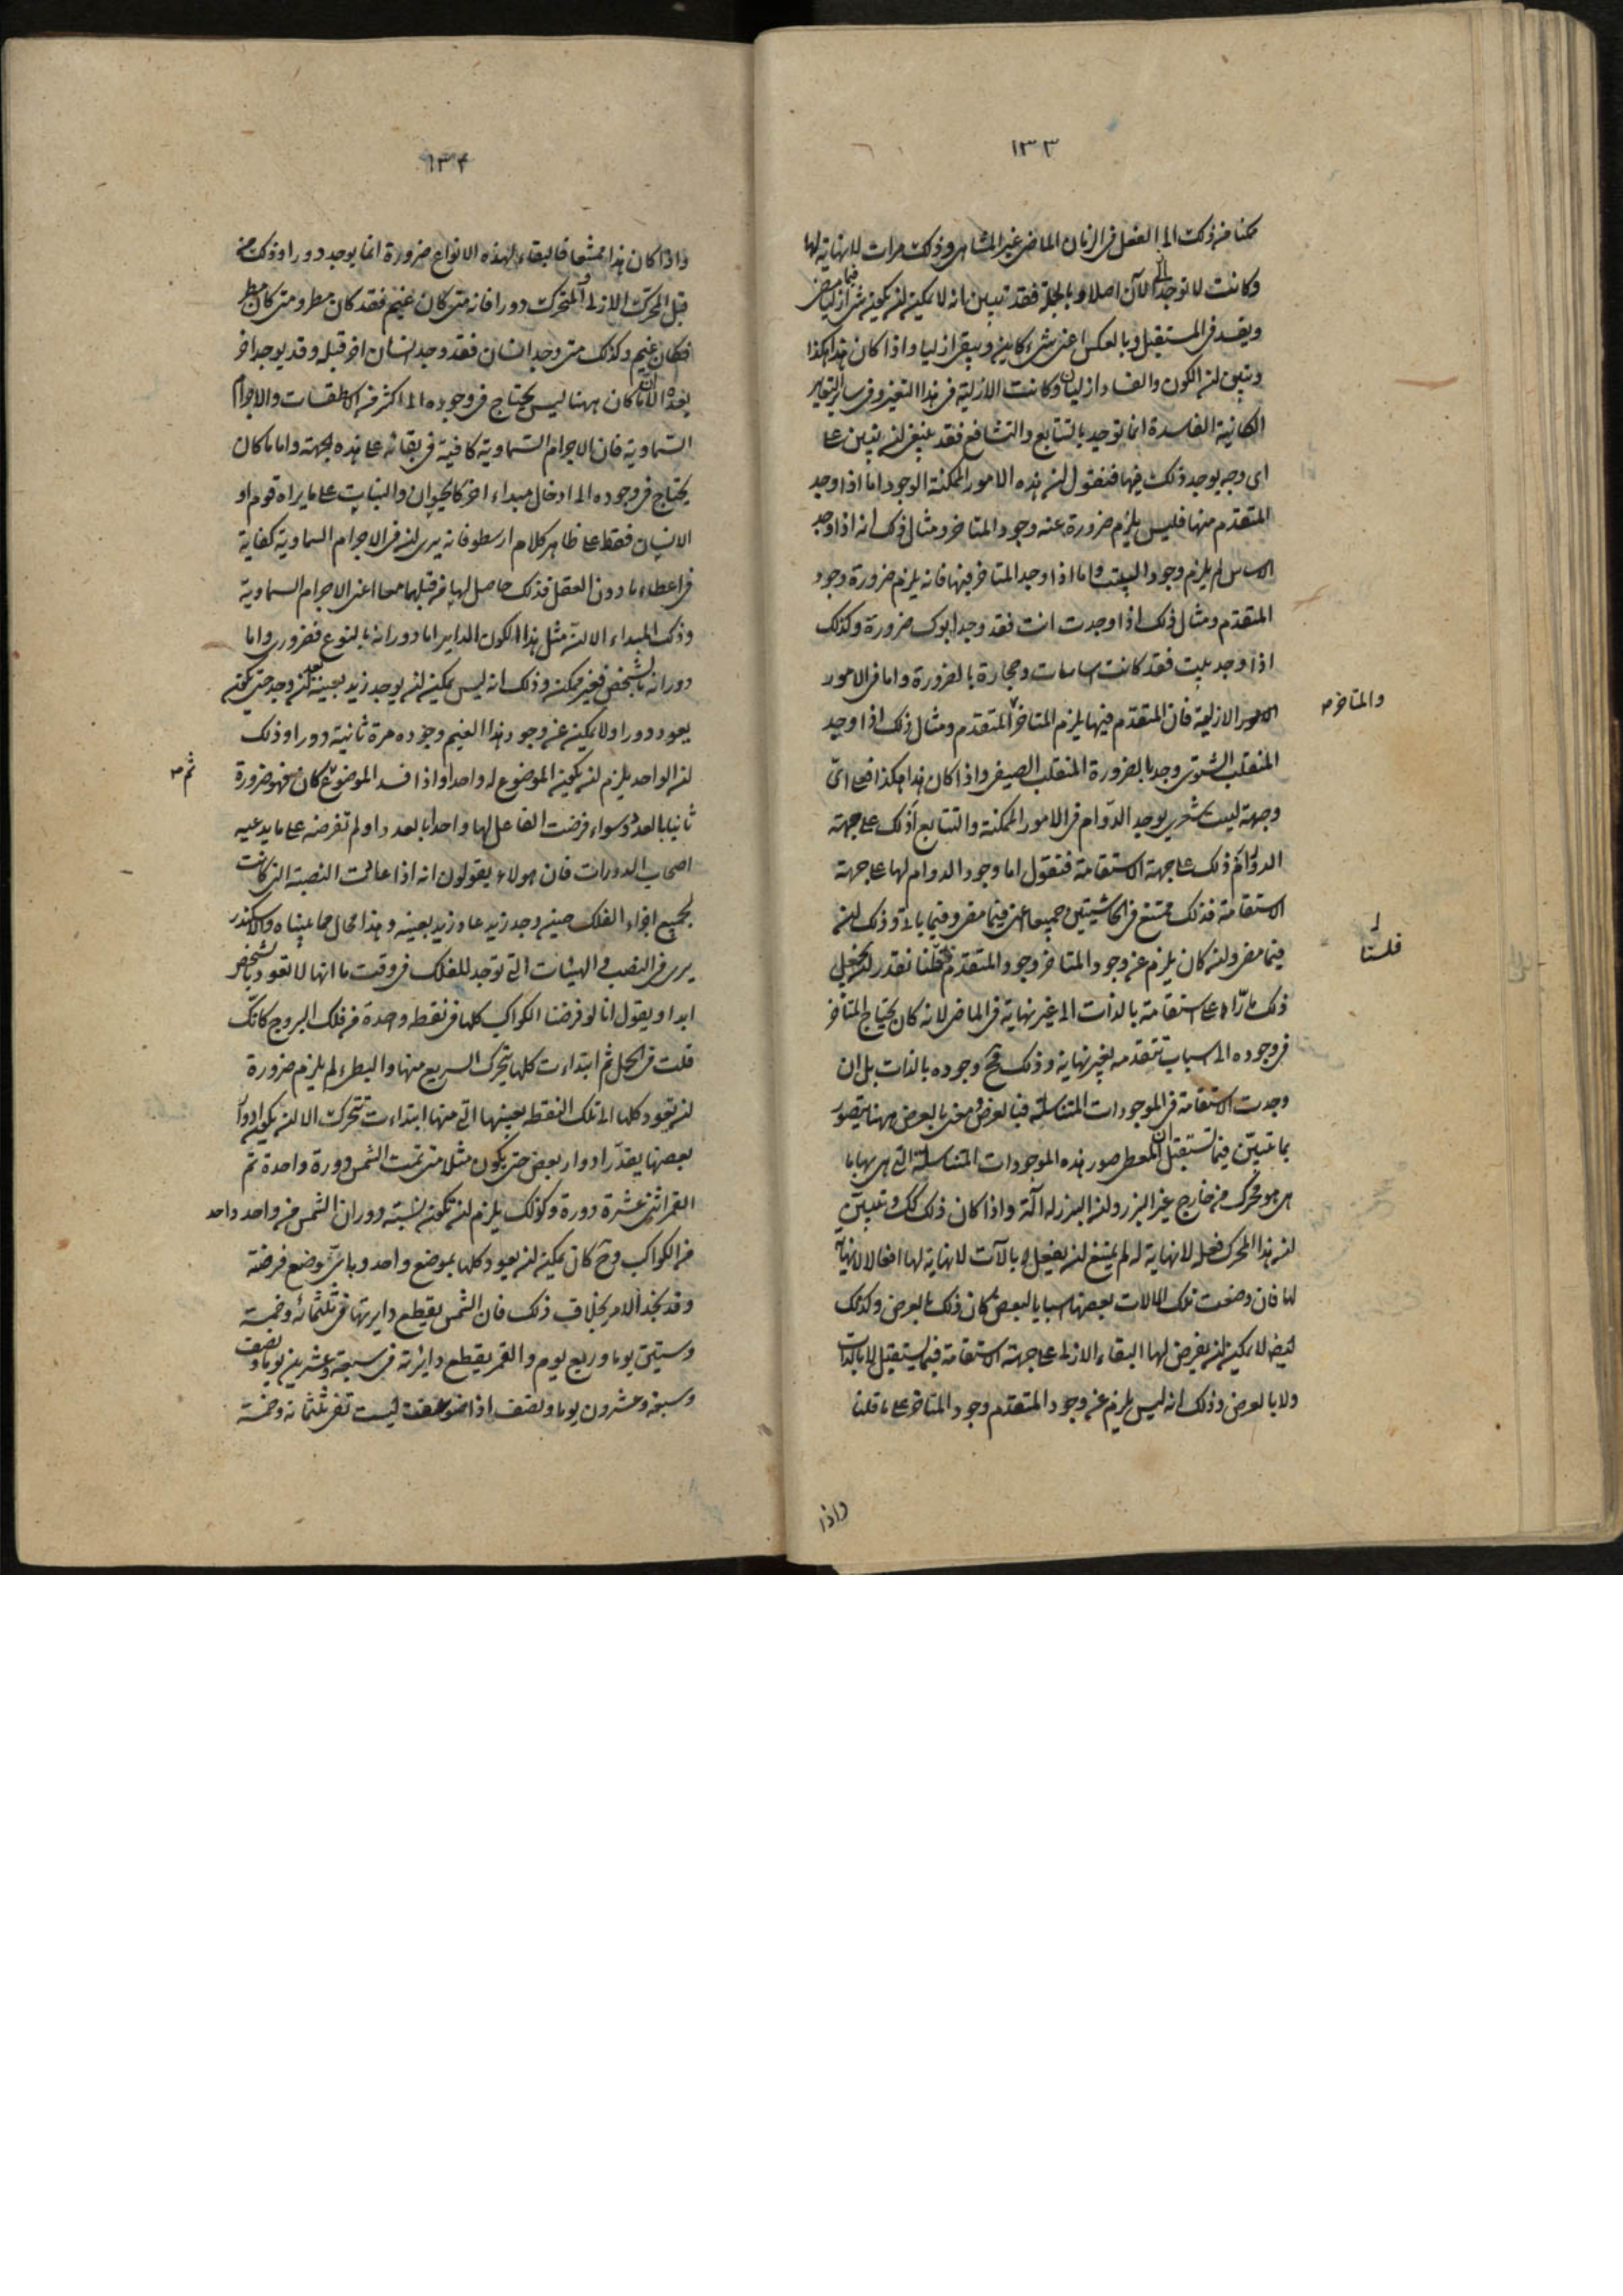 ١٣٣
ممكنا من ذلك الى الفعل فى الزمان الماضى غير المتناهى وذلك مرات لا نهاية لها
وكانت لا توجد الى الآن اصلا وبالجملة فقد تبين انه لا يمكن ان يكون شئ ازليا فيما مضى
ويفسد فى المستقبل وبالعكس اعنى شئ كاين ويبقى ازليا واذا كان هذا هكذا
وتبين ان الكون والفساد ازليان وكانت الازلية فى هذا التغير وفى ساير التغاير
الكائنة الفاسدة انما توجد بالتتابع والتشافع فقد ينبغى ان يتبين على
اى وجه يوجد ذلك فيها فنقول ان هذه الامور الممكنة الوجود اما اذا وجد
المتقدم منها فليس يلزم ضرورة عنه وجود المتاخر ومثال ذلك انه اذا وجد
الاساس لم يلزم وجود البيت واما اذا وجد المتاخر فيها فانه يلزم ضرورة وجود
المتقدم ومثال ذلك اذا وجدت انت فقد وجد ابوك ضرورة وكذلك
اذا وجد بيت فقد كانت اساسات وحجارة بالضرورة واما فى الامور
الامور الازلية فان المتقدم فيها يلزم المتاخر المتقدم ومثال ذلك اذا وجد
والمتاخر صح
المنقلب الشتوى وجد بالضرورة المنقلب الصيفى واذا كان هذا هكذا فعلى اى
وجهة ليت شعرى يوجد الدوام فى الامور الممكنة والتتابع أذلك على جهة
الدور ام ذلك على جهة الاستقامة فنقول اما وجود الدوام لها على جهة
الاستقامة فذلك ممتنع فى الحاشيتين جميعا اعنى فيما مضى وفيما ياتى وذلك ان
فيما مضى وان كان يلزم عن وجود المتاخر وجود المتقدم نقدر ان نجعل
فلسنا
ذلك مارّا على استقامة بالذات الى غير نهاية فى الماضى لانه كان يحتاج المتاخر
فى وجوده الى اسباب تتقدمه بغير نهاية وذلك وجوده بالذات بل ان
وجدت الاستقامة فى الموجودات المتناسلة فبالعرض ومعنى بالعرض ههنا يتصور
بما تبين فيما يستقبل ان المعطى صور هذه الموجودات المتناسلة التى هى بها ما
هى هو محرك من خارج غير البزر وان البزر له آلة واذا كان ذلك كك وتبين
ان هذا المحرك فعل لا نهاية له لم يمتنع ان يفعل بالآت لا نهاية لها افعالا لا نهاية
لها فان وضعت تلك الالات بعضها اسبابا لبعض كان ذلك بالعرض وكذلك
ايضا لا يمكن ان نفرض لها البقاء الازلى على جهة الاستقامة فيما يستقبل لا بالذات
ولا بالعرض وذلك انه ليس يلزم عن وجود المتقدم وجود المتاخر على ما قلنا
واذا
١٣٤
واذا كان هذا ممتنعا فالبقاء لهذه الانواع ضرورة انما يوجد دورا وذلك من
قبل المحرك الازلى والمتحرك دورا فانه متى كان غيم فقد كان مطر ومتى كان مطر
فكان غيم وكذلك متى وجد انسان فقد وجد انسان اخر قبله وقد يوجد اخر
بعده الا ان ما كان ههنا ليس يحتاج فى وجوده الى اكثر من الاسطقسات والاجرام
السماوية فان الاجرام السماوية كافية فى بقائه على هذه الجهة واما ما كان
يحتاج فى وجوده الى ادخال مبداء اخر كالحيوان والنبات على ما يراه قوم او
الانسان فقط على ظاهر كلام ارسطو فانه يرى ان فى الاجرام السماوية كفاية
فى اعطاء ما دون العقل فذلك حاصل لها من قبلهما معا اعنى الاجرام السماوية
وذلك المبداء الا ان مثل هذا الكون الداير اما دورانه بالنوع فضرورى واما
دورانه بالشخص فغير ممكن وذلك انه ليس يمكن ان يوجد زيد بعينه بعد ان وجد حتى يكون
يعود دورا ولا يمكن عن وجود هذا الغيم وجوده مرة ثانية دورا وذلك
ان الواحد يلزم ان يكون الموضوع له واحدا واذا فسد الموضوع كان فهو ضرورة
ثم صح
ثانيا بالعدد وسواء فرضت الفاعل لها واحدا بالعدد او لم تفرضه على ما يدعيه
اصحاب الدورات فان هولاء يقولون انه اذا عادت النصبة التى كانت
لجميع اجزاء الفلك حين وجد زيد عاد زيد بعينه وهذا محال مما بيناه والاسكندر
يرى فى النصب و الهيئات التى توجد للفلك فى وقت ما انها لا تعود بالشخص
ابدا ويقول انا لو فرضنا الكواكب كلها فى نقطة واحدة من فلك البروج كانك
قلت فى الحمل ثم ابتداءت كلها يتحرك السريع منها والبطىء لم يلزم ضرورة
ان تعود كلها الى تلك النقطة بعينها التى منها ابتداءت تتحرك الا ان يكون ادوار
بعضها يقدّر ادوار بعض حتى يكون مثلا متى تمت الشمس دورة واحدة تم
القمر اثنى عشرة دورة وكذلك يلزم ان تكون نسبة دوران الشمس من واحد واحد
من الكواكب وح كان يمكن ان يعود كلها بموضع واحد وباى موضع فرضته
وقد نجد الامر بخلاف ذلك فان الشمس يقطع دايرتها فى ثلثمائة وخمسة
وستين يوما وربع يوم والقمر يقطع دائرته فى سبعة وعشرين يوما ونصف
وسبعة وعشرون يوما ونصف اذا ضوعفت ليست تفنى ثلثمائة وخمسة